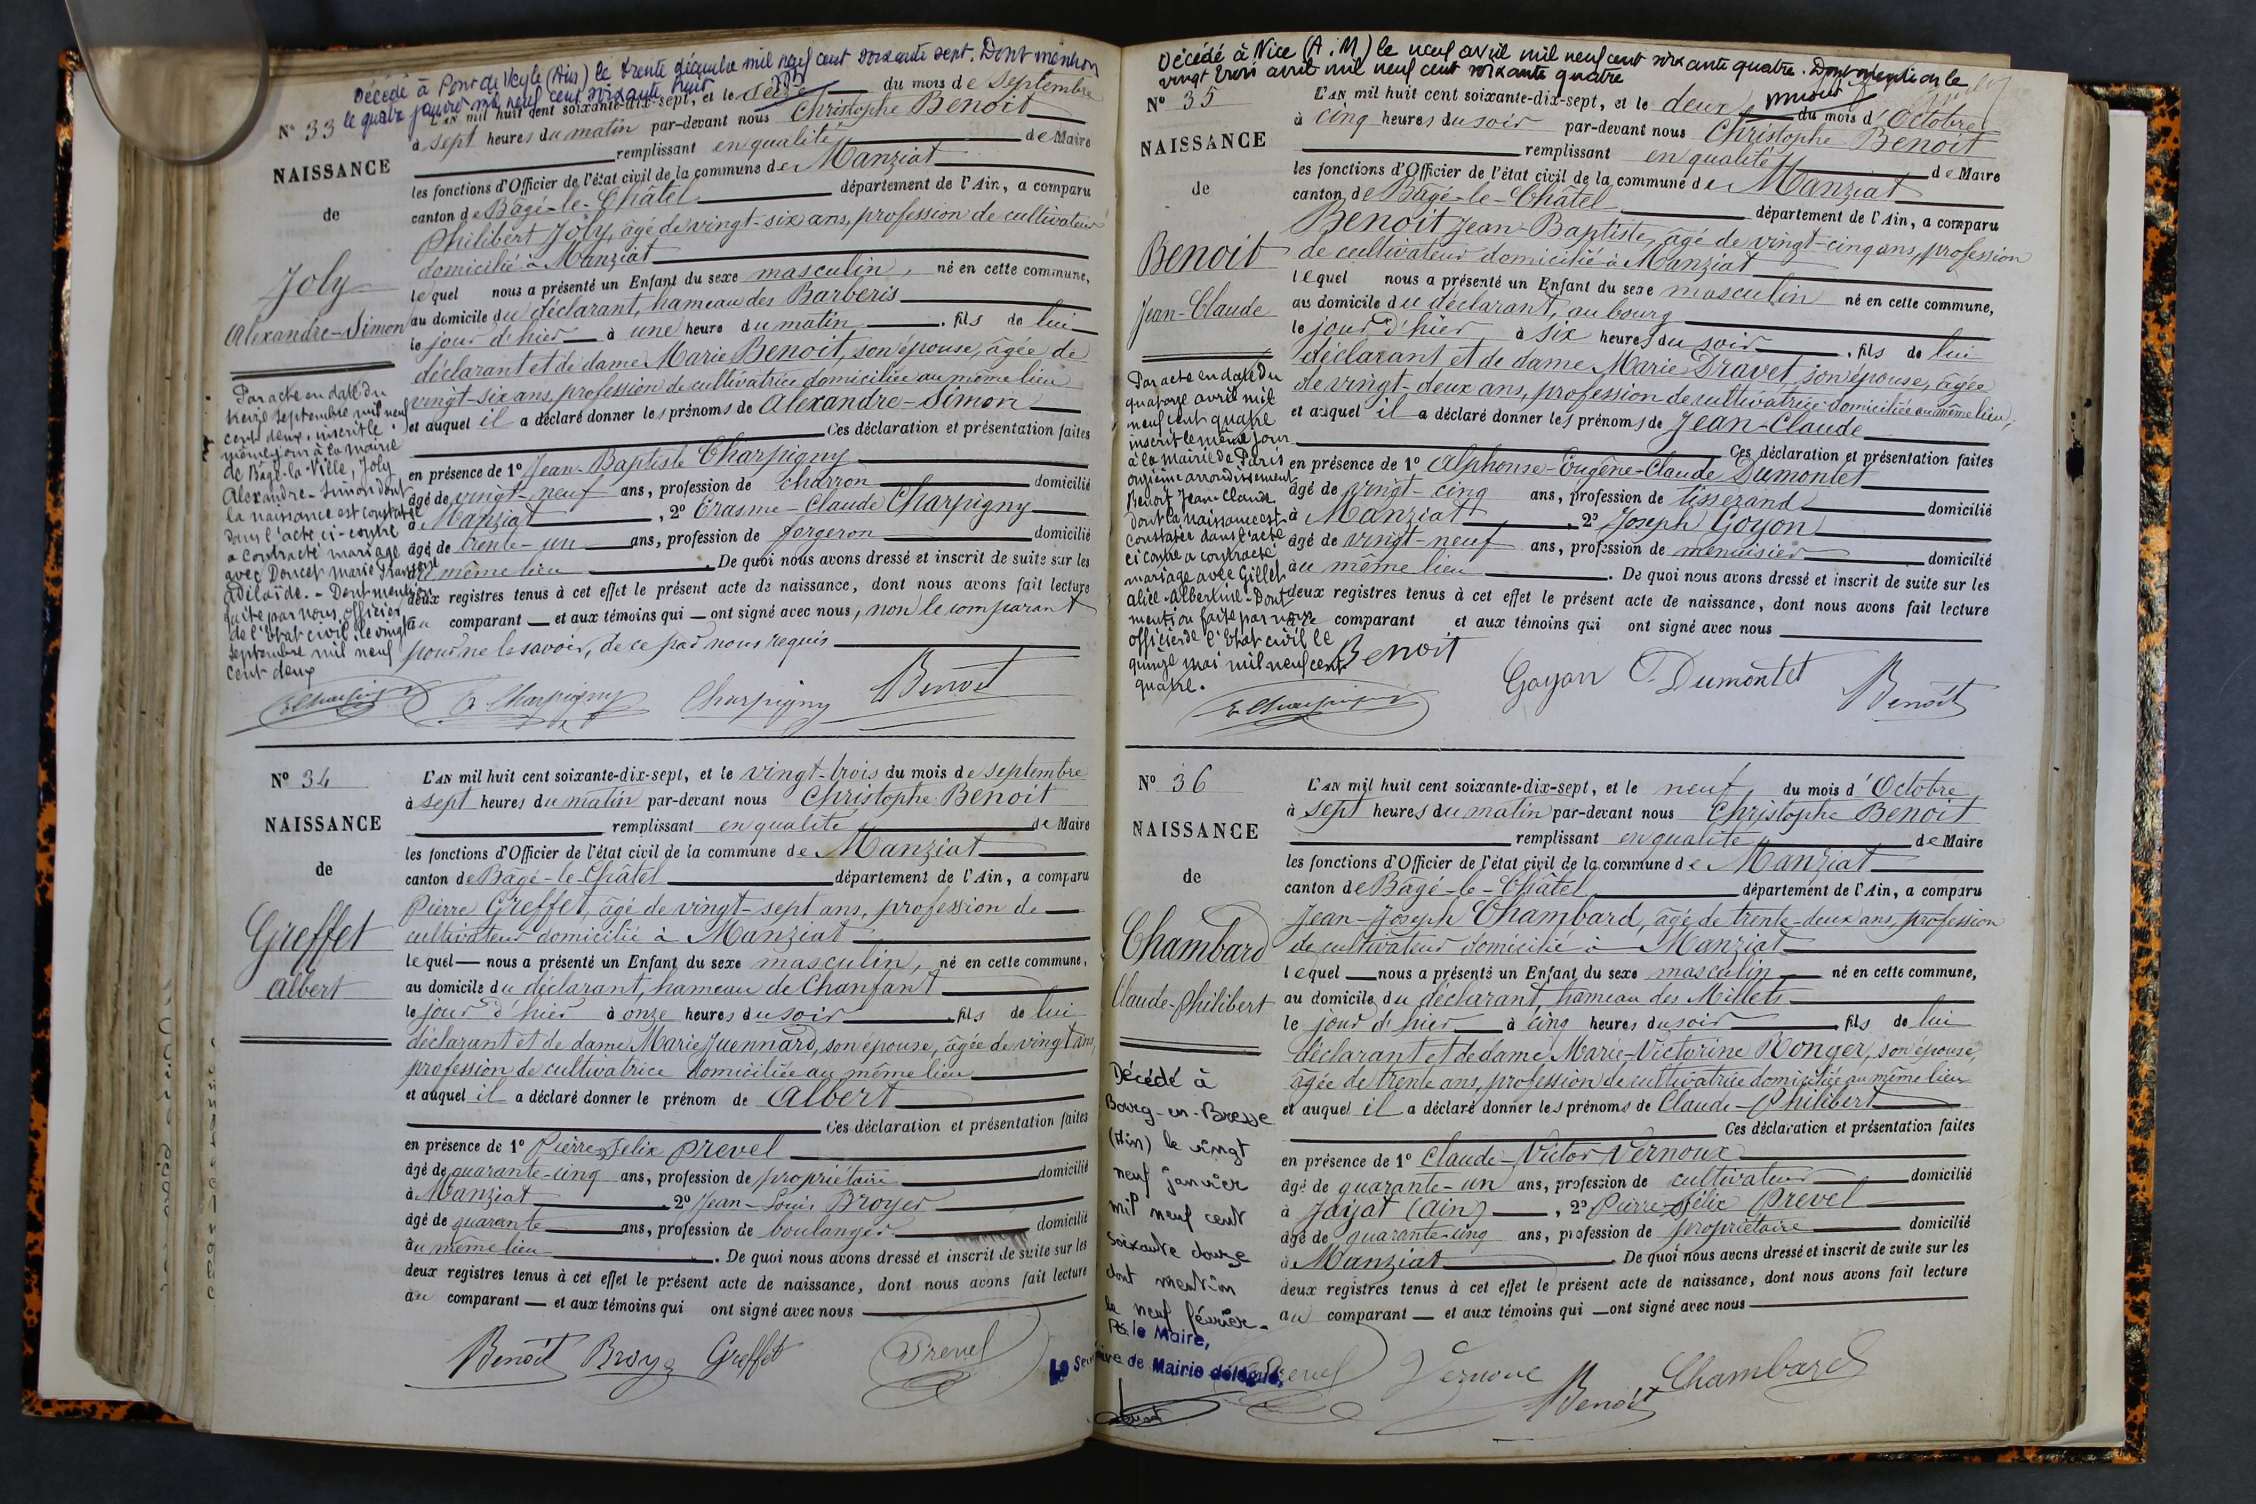 Décédé à Pont de Veyle (Ain) le trente décembre mil neuf cent soixante sept. Dont mention
le quatre janvier mil neuf cent soixante huit
N° 33
NAISSANCE
de
Joly
Alexandre-Simon
L'AN mil huit cent soixante-dix-sept, et le seize du mois de Septembre
à sept heures du matin par-devant nous Christophe Benoit
remplissant en qualité de Maire
les fonctions d'Officier de l'état civil de la commune de Manziat
canton de Bâgé-le-Châtel département de l'Ain, a comparu
Philibert Joly, âgé de vingt-six ans, profession de cultivateur
domicilié à Manziat
lequel nous a présenté un Enfant du sexe masculin, né en cette commune,
au domicile du déclarant, hameau des Barberis
le jour d'hier à une heure du matin, fils de lui
déclarant et de dame Marie Benoit, son épouse, âgée de
vingt-six ans, profession de cultivatrice domiciliée au même lieu
et auquel il a déclaré donner les prénoms de Alexandre-Simon
Ces déclaration et présentation faites
en présence de 1° Jean-Baptiste Charpigny
âgé de vingt-neuf ans, profession de Charron domicilié
à Manziat, 2° Erasme-Claude Charpigny
âgé de trente-un ans, profession de forgeron domicilié
au même lieu. De quoi nous avons dressé et inscrit de suite sur les
deux registres tenus à cet effet le présent acte de naissance, dont nous avons fait lecture
au comparant et aux témoins qui ont signé avec nous, non le comparant
pour ne le savoir, de ce par nous requis
Par acte en date du
treize septembre mil neuf
cent deux, inscrit le
même jour à la mairie
de Bâgé-la-Ville, Joly
Alexandre-Simon dont
la naissance est constatée
dans l'acte ci-contre
a contracté mariage
avec Doucet Marie Françoise
Adélaïde. - Dont mention
faite par nous, officier
de l'état civil, le vingt
septembre mil neuf
cent deux
E. Charpigny Charpigny Benoit
N° 34
NAISSANCE
de
Greffet
Albert
L'AN mil huit cent soixante-dix-sept, et le vingt-trois du mois de Septembre
à sept heures du matin par-devant nous Christophe Benoit
remplissant en qualité de Maire
les fonctions d'Officier de l'état civil de la commune de Manziat
canton de Bâgé-le-Châtel département de l'Ain, a comparu
Pierre Greffet, âgé de vingt-sept ans, profession de
cultivateur domicilié à Manziat
lequel nous a présenté un Enfant du sexe masculin, né en cette commune,
au domicile du déclarant, hameau de Chanfant
le jour d'hier à onze heures du soir, fils de lui
déclarant et de dame Marie Juennard, son épouse, âgée de vingt ans,
profession de cultivatrice domiciliée au même lieu
et auquel il a déclaré donner le prénom de Albert
Ces déclaration et présentation faites
en présence de 1° Pierre Félix Prevel
âgé de quarante-cinq ans, profession de propriétaire domicilié
à Manziat, 2° Jean-Louis Broyer
âgé de quarante ans, profession de boulanger domicilié
au même lieu. De quoi nous avons dressé et inscrit de suite sur les
deux registres tenus à cet effet le présent acte de naissance, dont nous avons fait lecture
au comparant et aux témoins qui ont signé avec nous
Benoit Broyer Greffet Prevel
Décédé à Nice (A.M) le neuf avril mil neuf cent soixante quatre. Dont mention le
vingt trois avril mil neuf cent soixante quatre
N° 35
NAISSANCE
de
Benoit
Jean-Claude
L'AN mil huit cent soixante-dix-sept, et le deux du mois d'Octobre
à cinq heures du soir par-devant nous Christophe Benoit
remplissant en qualité de Maire
les fonctions d'Officier de l'état civil de la commune de Manziat
canton de Bâgé-le-Châtel département de l'Ain, a comparu
Benoit Jean-Baptiste, âgé de vingt-cinq ans, profession
de cultivateur domicilié à Manziat
lequel nous a présenté un Enfant du sexe masculin né en cette commune,
au domicile du déclarant, au bourg
le jour d'hier à six heures du soir, fils de lui
déclarant et de dame Marie Dravet, son épouse, âgée
de vingt-deux ans, profession de cultivatrice domiciliée au même lieu,
et auquel il a déclaré donner les prénoms de Jean-Claude
Ces déclaration et présentation faites
en présence de 1° Alphonse-Eugène-Claude Dumontet
âgé de vingt-cinq ans, profession de tisserand domicilié
à Manziat, 2° Joseph Goyon
âgé de vingt-neuf ans, profession de menuisier domicilié
au même lieu. De quoi nous avons dressé et inscrit de suite sur les
deux registres tenus à cet effet le présent acte de naissance, dont nous avons fait lecture
au comparant et aux témoins qui ont signé avec nous
Par acte en date du
quatorze avril mil
neuf cent quatre
inscrit le même jour
à la mairie de Paris
onzième arrondissement
Benoit Jean Claude
dont la naissance est
constatée dans l'acte
ci contre a contracté
mariage avec Gillet
Alice-Albertine. Dont
mention faite par nous
officier de l'état civil le
quinze mai mil neuf cent
quatre.
Benoit Goyon Dumontet Benoit
N° 36
NAISSANCE
de
Chambard
Claude-Philibert
L'AN mil huit cent soixante-dix-sept, et le neuf du mois d'Octobre
à sept heures du matin par-devant nous Christophe Benoit
remplissant en qualité de Maire
les fonctions d'Officier de l'état civil de la commune de Manziat
canton de Bâgé-le-Châtel département de l'Ain, a comparu
Jean-Joseph Chambard, âgé de trente-deux ans, profession
de cultivateur domicilié à Manziat
lequel nous a présenté un Enfant du sexe masculin né en cette commune,
au domicile du déclarant, hameau des Millets
le jour d'hier à cinq heures du soir, fils de lui
déclarant et de dame Marie-Victorine Ronger, son épouse,
âgée de trente ans, profession de cultivatrice domiciliée au même lieu
et auquel il a déclaré donner les prénoms de Claude-Philibert
Ces déclaration et présentation faites
en présence de 1° Claude-Victor Vernoux
âgé de quarante-un ans, profession de cultivateur domicilié
à Jayat (Ain), 2° Pierre-Félix Prevel
âgé de quarante-cinq ans, profession de propriétaire domicilié
à Manziat. De quoi nous avons dressé et inscrit de suite sur les
deux registres tenus à cet effet le présent acte de naissance, dont nous avons fait lecture
au comparant et aux témoins qui ont signé avec nous
Décédé à
Bourg-en-Bresse
(Ain) le vingt
neuf janvier
mil neuf cent
soixante douze
dont mention
le neuf février.
le Maire,
Le Secrétaire de Mairie délégué,
Prevel Vernoux Benoit Chambard